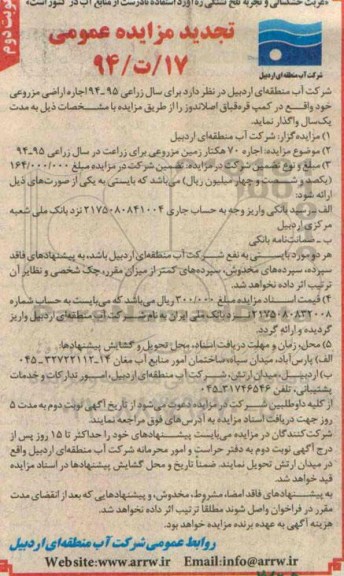 «عزت خشکسالی و تجربه تلخ تشنگی ره آورد استفاده نادرست از منابع آب در کشور است»
نوبت دوم
تجدید مزایده عمومی
۹۴/ت/۱۷
شرکت آب منطقه ای اردبیل
شرکت آب منطقه‌ای اردبیل در نظر دارد برای سال زراعی ۹۵-۹۴ اجاره اراضی مزروعی
خود واقع در کمپ قره‌قباق اصلاندوز را از طریق مزایده با مشخصات ذیل به مدت
یک‌سال واگذار نماید.
۱) مزایده گزار: شرکت آب منطقه‌ای اردبیل
۲) موضوع مزایده: اجاره ۷۰ هکتار زمین مزروعی برای زراعت در سال زراعی ۹۵-۹۴
۳) مبلغ و نوع تضمین شرکت در مزایده: تضمین شرکت در مزایده مبلغ ۱۶۴/۰۰۰/۰۰۰
(یکصد و شصت و چهار میلیون ریال) می‌باشد که بایستی به یکی از صورت‌های ذیل
ارائه شود:
الف ـ رسید بانکی واریز وجه به حساب جاری ۲۱۷۵۰۸۰۸۴۱۰۰۴ نزد بانک ملی شعبه
مرکزی اردبیل
ب ـ ضمانت‌نامه بانکی
هر دو مورد بایستی به نفع شرکت آب منطقه‌ای اردبیل باشد، به پیشنهادهای فاقد
سپرده، سپرده‌های مخدوش، سپرده‌های کمتر از میزان مقرر، چک شخصی و نظایر آن
ترتیب اثر داده نخواهد شد.
۴) قیمت اسناد مزایده مبلغ ۳۰۰/۰۰۰ ریال می‌باشد که می‌بایست به حساب شماره
۲۱۷۵۰۸۰۸۳۲۰۰۸ نزد بانک ملی ایران به نام شرکت آب منطقه‌ای اردبیل واریز
گردیده و ارائه گردد.
۵) محل، زمان و مهلت دریافت اسناد، محل تحویل و گشایش پیشنهادها:
الف) پارس‌آباد، میدان سپاه، ساختمان امور منابع آب مغان ۱۴-۳۲۷۲۲۱۱۳-۰۴۵
ب) اردبیل، میدان ارتش، شرکت آب منطقه‌ای اردبیل، امور تدارکات و خدمات
پشتیبانی، تلفن ۳۱۷۴۶۵۴۶-۰۴۵
از کلیه داوطلبین شرکت در مزایده دعوت می‌شود از تاریخ آگهی نوبت دوم به مدت ۵
روز جهت دریافت اسناد مزایده به آدرس‌های فوق مراجعه نمایند.
شرکت کنندگان در مزایده می‌بایست پیشنهادهای خود را حداکثر تا ۱۵ روز پس از
درج آگهی نوبت دوم به دفتر حراست و امور محرمانه شرکت آب منطقه‌ای اردبیل واقع
در میدان ارتش تحویل نمایند. ضمناً تاریخ و محل گشایش پیشنهادها در اسناد مزایده
قید خواهد شد.
به پیشنهادهای فاقد امضاء، مشروط، مخدوش، و پیشنهادهایی که بعد از انقضای مدت
مقرر در فراخوان واصل شوند مطلقا ترتیب اثر داده نخواهد شد.
هزینه آگهی به عهده برنده مزایده خواهد بود.
روابط عمومی شرکت آب منطقه ای اردبیل
Website:www.arrw.ir Email:info@arrw.ir